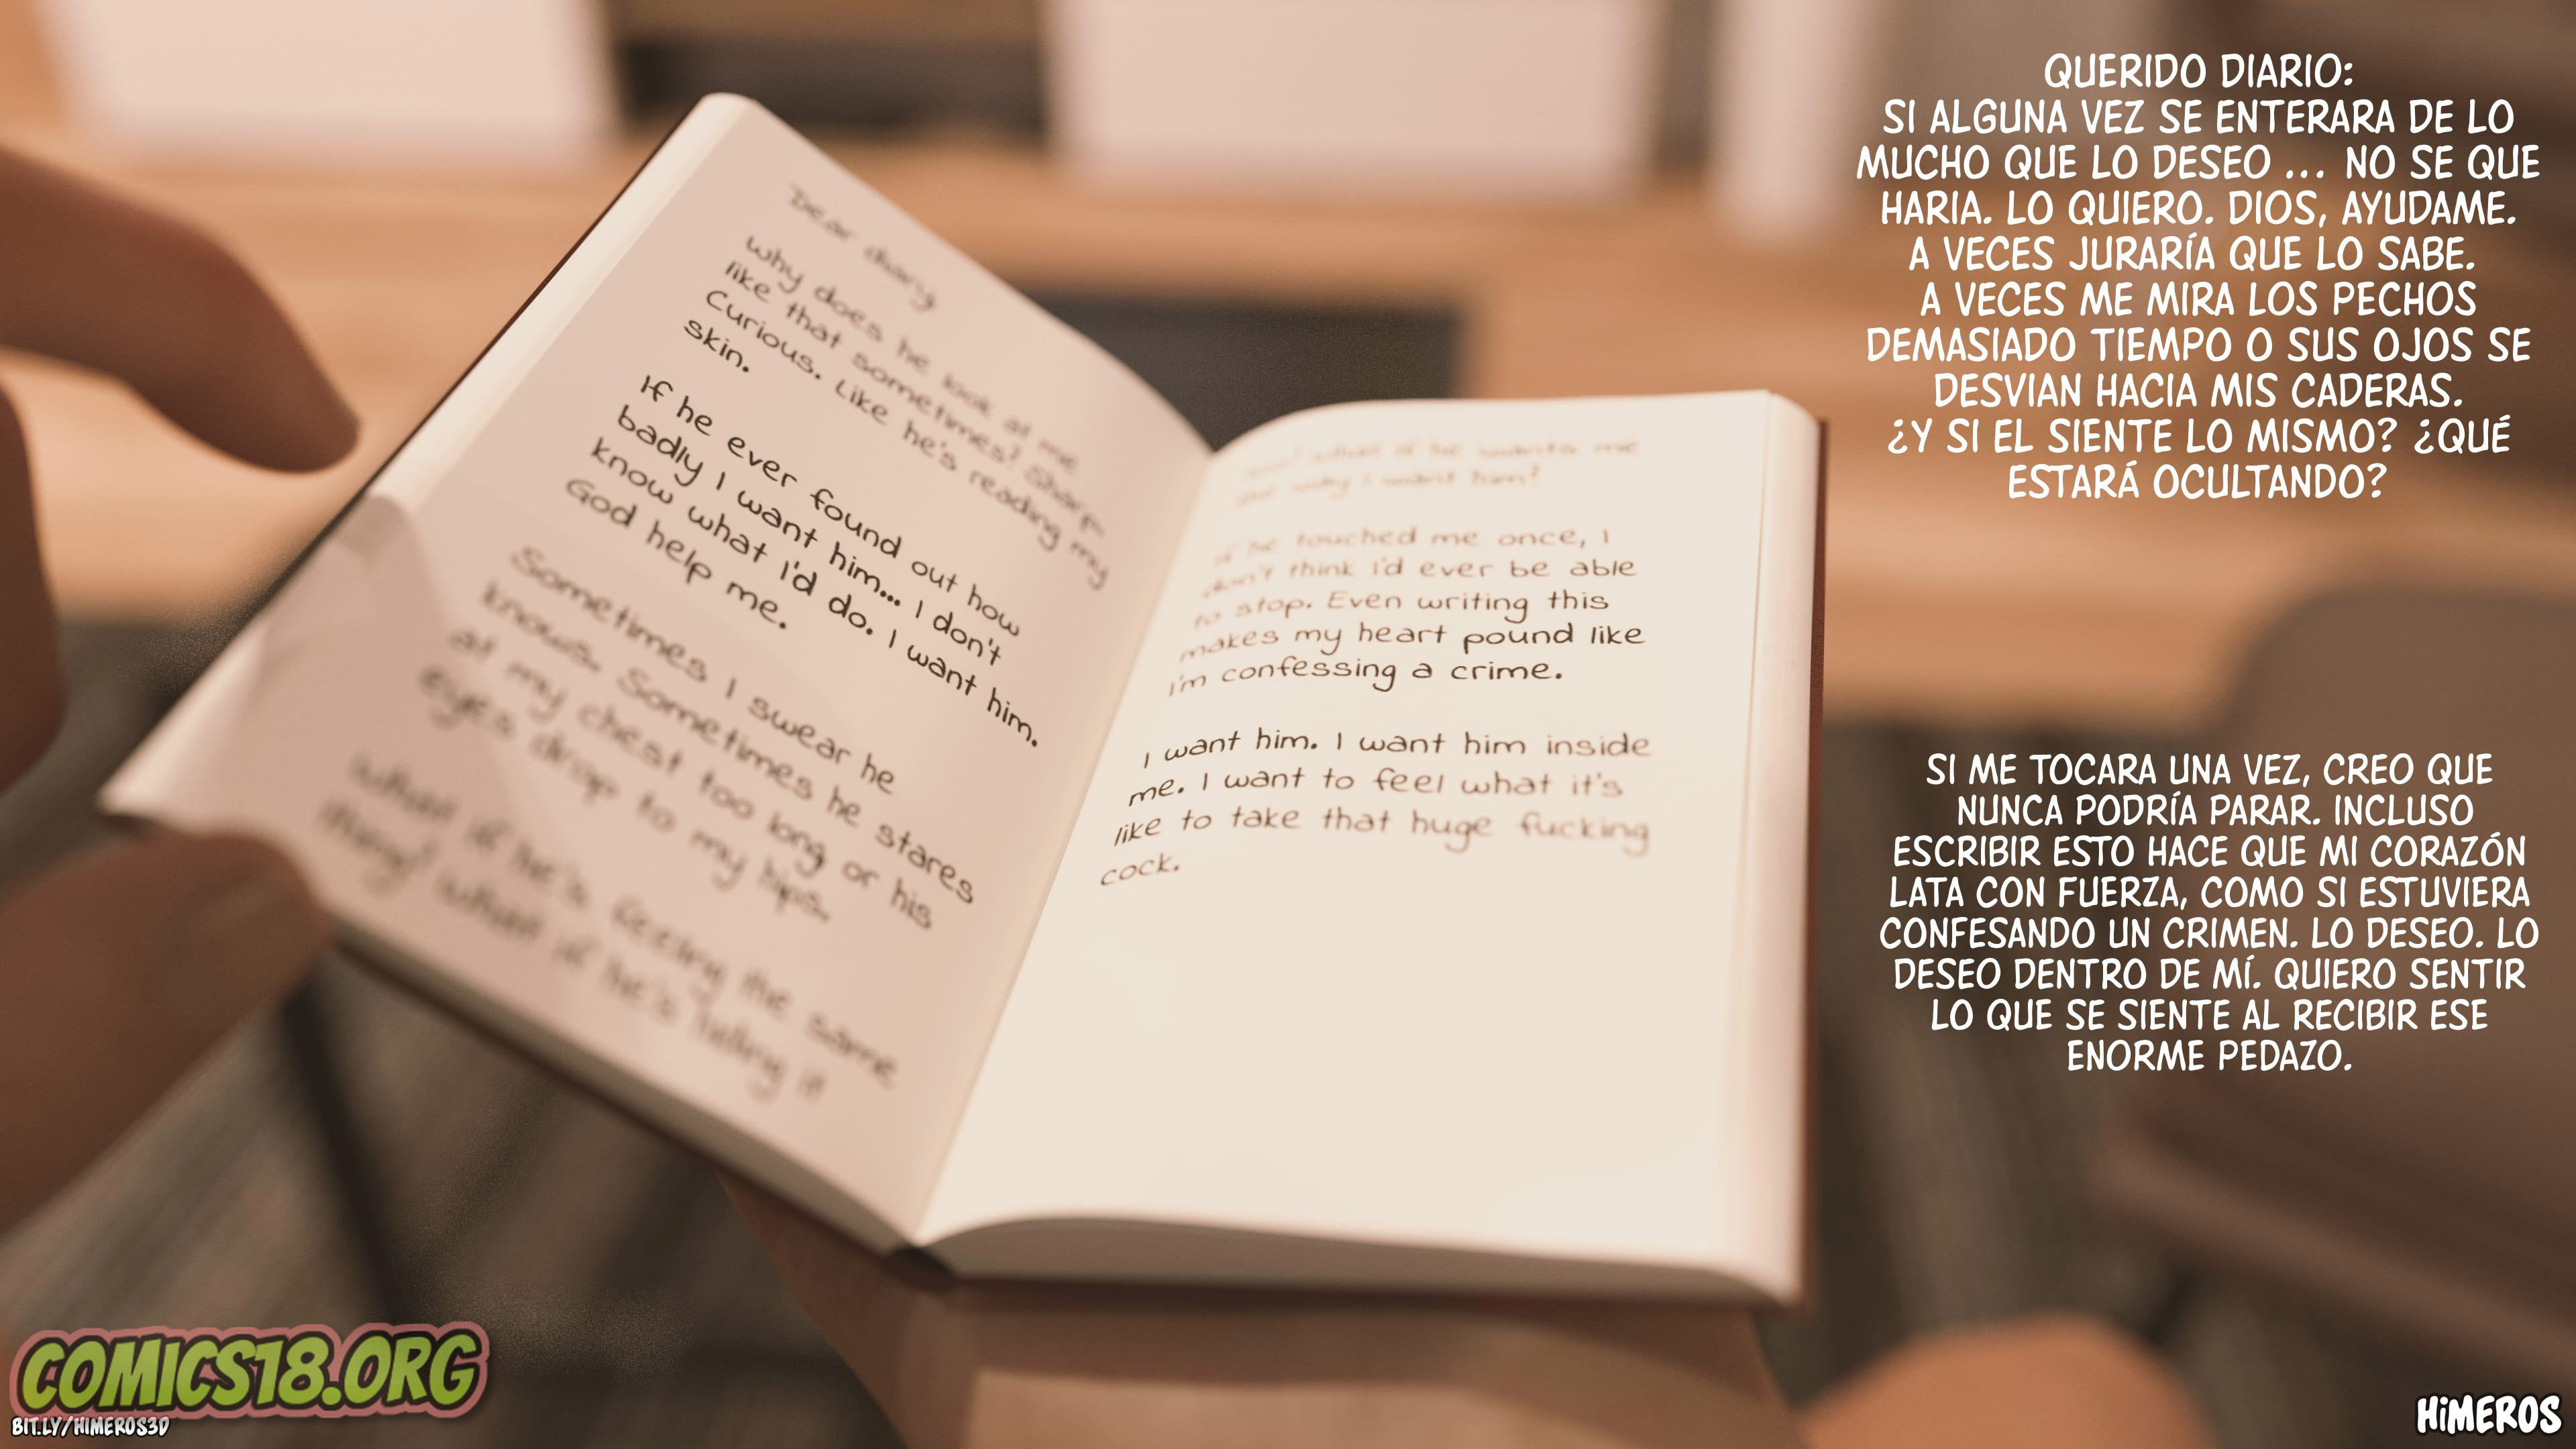 Dear diary
Why does he look at me
like that sometimes? Sharp.
Curious. Like he's reading my
skin.
If he ever found out how
badly I want him... I don't
know what I'd do. I want him.
God help me.
Sometimes I swear he
knows. Sometimes he stares
at my chest too long or his
eyes drop to my hips.
What if he's feeling the same
thing? What if he's hiding it
too? What if he wants me
the way I want him?
If he touched me once, I
don't think I'd ever be able
to stop. Even writing this
makes my heart pound like
I'm confessing a crime.
I want him. I want him inside
me. I want to feel what it's
like to take that huge fucking
cock.
QUERIDO DIARIO:
SI ALGUNA VEZ SE ENTERARA DE LO
MUCHO QUE LO DESEO ... NO SE QUE
HARIA. LO QUIERO. DIOS, AYUDAME.
A VECES JURARÍA QUE LO SABE.
A VECES ME MIRA LOS PECHOS
DEMASIADO TIEMPO O SUS OJOS SE
DESVIAN HACIA MIS CADERAS.
¿Y SI EL SIENTE LO MISMO? ¿QUÉ
ESTARÁ OCULTANDO?
SI ME TOCARA UNA VEZ, CREO QUE
NUNCA PODRÍA PARAR. INCLUSO
ESCRIBIR ESTO HACE QUE MI CORAZÓN
LATA CON FUERZA, COMO SI ESTUVIERA
CONFESANDO UN CRIMEN. LO DESEO. LO
DESEO DENTRO DE MÍ. QUIERO SENTIR
LO QUE SE SIENTE AL RECIBIR ESE
ENORME PEDAZO.
COMICS18.ORG
BIT.LY/HIMEROS3D
HiMEROS